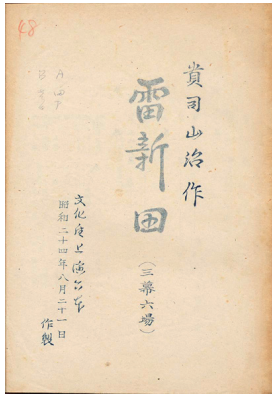 48
貴司山治作
雷新田
(三幕六場)
文化座上演台本
昭和二十四年八月二十一日
作製